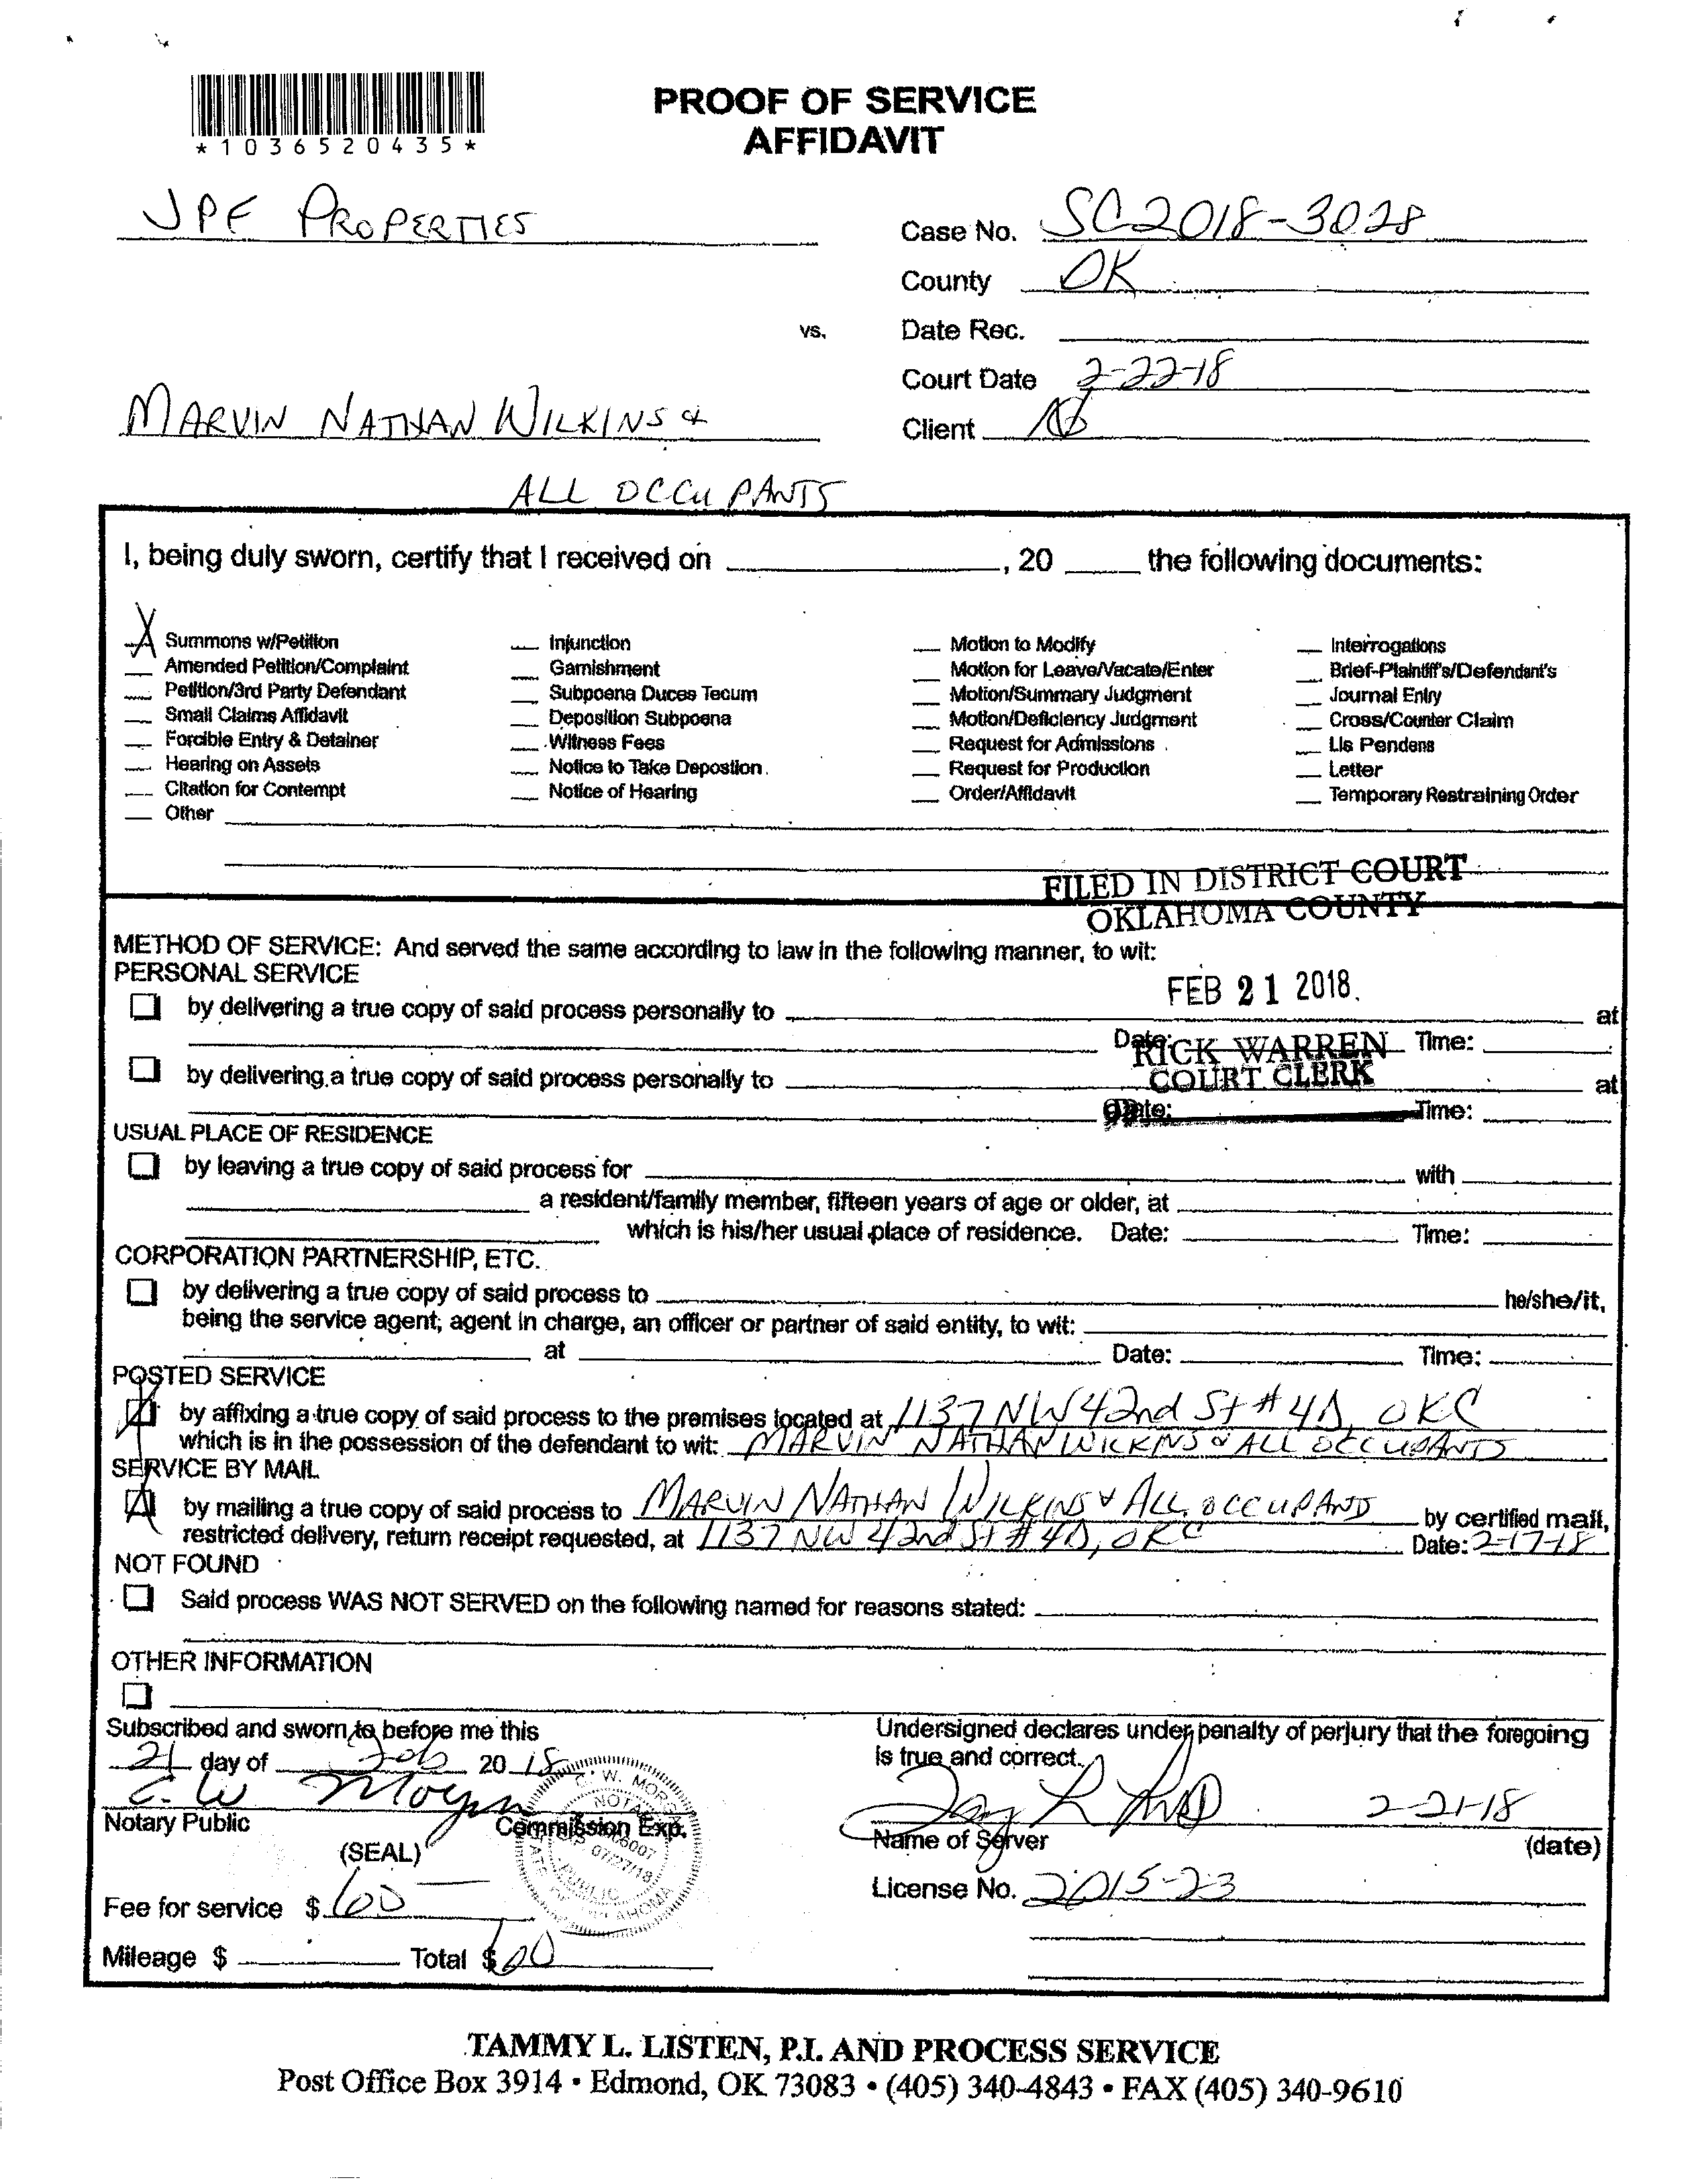 PROOF OF SERVICE
AFFIDAVIT
*1036520435*
JPE PROPERTIES
Case No. SC2018-3028
County OK
vs.
Date Rec.
Court Date 2-22-18
MARVIN NATHAN WILKINS &
Client
ALL OCCUPANTS
I, being duly sworn, certify that I received on ____, 20 ____ the following documents:
X Summons w/Petition
Amended Petition/Complaint
Petition/3rd Party Defendant
Small Claims Affidavit
Forcible Entry & Detainer
Hearing on Assets
Citation for Contempt
Other
Injunction
Garnishment
Subpoena Duces Tecum
Deposition Subpoena
Witness Fees
Notice to Take Depostion
Notice of Hearing
Motion to Modify
Motion for Leave/Vacate/Enter
Motion/Summary Judgment
Motion/Deficiency Judgment
Request for Admissions
Request for Production
Order/Affidavit
Interrogations
Brief-Plaintiff's/Defendant's
Journal Entry
Cross/Counter Claim
Lis Pendens
Letter
Temporary Restraining Order
FILED IN DISTRICT COURT
OKLAHOMA COUNTY
METHOD OF SERVICE: And served the same according to law in the following manner, to wit:
PERSONAL SERVICE
FEB 21 2018
by delivering a true copy of said process personally to ____ at
Date: Time:
RICK WARREN
COURT CLERK
by delivering a true copy of said process personally to ____ at
Date: Time:
USUAL PLACE OF RESIDENCE
by leaving a true copy of said process for ____ with
a resident/family member, fifteen years of age or older, at
which is his/her usual place of residence. Date: Time:
CORPORATION PARTNERSHIP, ETC.
by delivering a true copy of said process to ____ he/she/it,
being the service agent; agent in charge, an officer or partner of said entity, to wit:
at Date: Time:
POSTED SERVICE
by affixing a true copy of said process to the premises located at 1137 NW 42nd St # 4D, OKC
which is in the possession of the defendant to wit: MARVIN NATHAN WILKINS & ALL OCCUPANTS
SERVICE BY MAIL
by mailing a true copy of said process to MARVIN NATHAN WILKINS & ALL OCCUPANTS by certified mail,
restricted delivery, return receipt requested, at 1137 NW 42nd St # 4D, OKC Date: 2-17-18
NOT FOUND
Said process WAS NOT SERVED on the following named for reasons stated:
OTHER INFORMATION
Subscribed and sworn to before me this
21 day of Feb 2018
C. W Morgan
Notary Public
Commission Exp.
(SEAL)
C. W. MORGAN
NOTARY
07/27/18
PUBLIC
OKLAHOMA
Fee for service $ 60
Mileage $ ____ Total $ 60
Undersigned declares under penalty of perjury that the foregoing
is true and correct.
2-21-18
Name of Server (date)
License No. 2015-23
TAMMY L. LISTEN, P.I. AND PROCESS SERVICE
Post Office Box 3914 • Edmond, OK 73083 • (405) 340-4843 • FAX (405) 340-9610